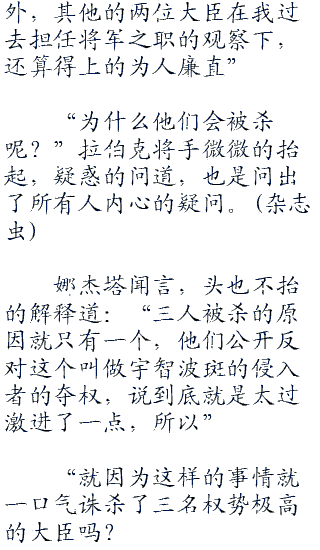 外，其他的两位大臣在我过
去担任将军之职的观察下，
还算得上的为人廉直”
“为什么他们会被杀
呢？”拉伯克将手微微的抬
起，疑惑的问道，也是问出
了所有人内心的疑问。(杂志
虫)
娜杰塔闻言，头也不抬
的解释道：“三人被杀的原
因就只有一个，他们公开反
对这个叫做宇智波斑的侵入
者的夺权，说到底就是太过
激进了一点，所以”
“就因为这样的事情就
一口气诛杀了三名权势极高
的大臣吗？